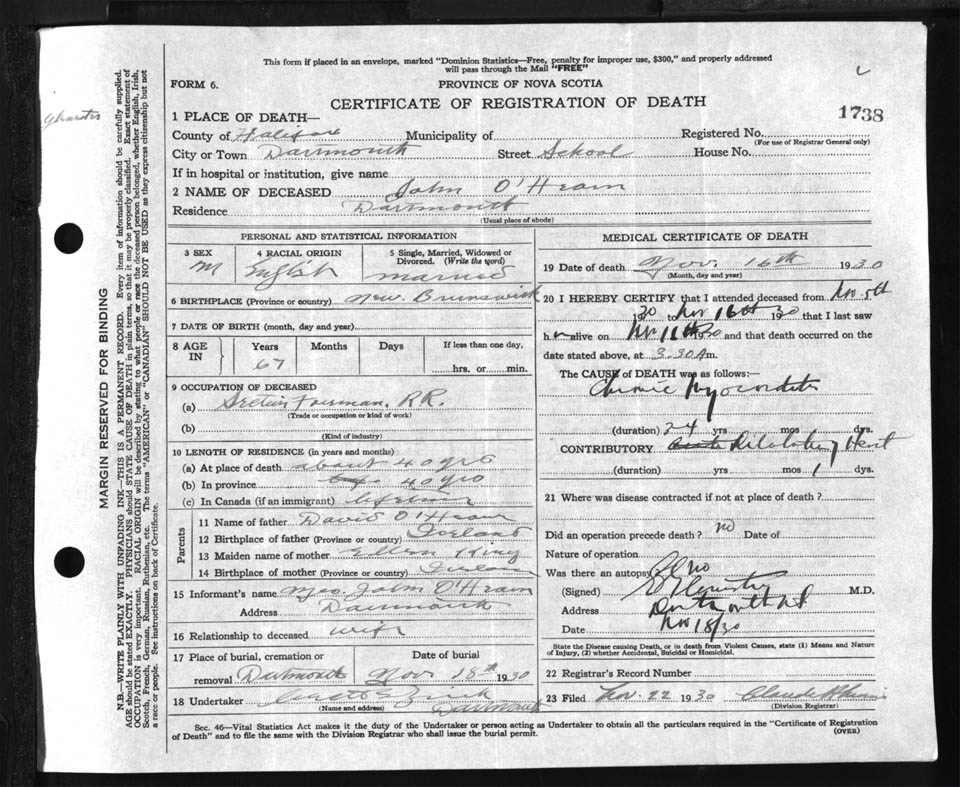 This form if placed in an envelope, marked "Dominion Statistics—Free, penalty for improper use, $300," and properly addressed
will pass through the Mail "FREE"
FORM 6.
PROVINCE OF NOVA SCOTIA
CERTIFICATE OF REGISTRATION OF DEATH
1738
1 PLACE OF DEATH—
County of Halifax Municipality of Registered No.
(For use of Registrar General only)
City or Town Dartmouth Street School House No.
If in hospital or institution, give name
2 NAME OF DECEASED John O'Hearn
Residence Dartmouth
(Usual place of abode)
MARGIN RESERVED FOR BINDING
N.B.—WRITE PLAINLY WITH UNFADING INK—THIS IS A PERMANENT RECORD. Every item of information should be carefully supplied.
AGE should be stated EXACTLY. PHYSICIANS should STATE CAUSE OF DEATH in plain terms, so that it may be properly classified. Exact statement of
OCCUPATION is very important. RACIAL ORIGIN will be described by stating to what people or race the deceased person belonged, whether English, Irish,
Scotch, French, German, Russian, Ruthenian, etc. The terms "AMERICAN" or "CANADIAN" SHOULD NOT BE USED as they express citizenship but not
a race or people. See instructions on back of Certificate.
PERSONAL AND STATISTICAL INFORMATION
3 SEX
M
4 RACIAL ORIGIN
English
5 Single, Married, Widowed or
Divorced. (Write the word)
married
6 BIRTHPLACE (Province or country) New Brunswick
7 DATE OF BIRTH (month, day and year)
8 AGE
IN
Years Months Days If less than one day,
67 hrs. or min.
9 OCCUPATION OF DECEASED
(a) Section Foreman, RR.
(Trade or occupation or kind of work)
(b)
(Kind of industry)
10 LENGTH OF RESIDENCE (in years and months)
(a) At place of death about 40 yrs
(b) In province 40 yrs
(c) In Canada (if an immigrant) lifetime
Parents
11 Name of father David O'Hearn
12 Birthplace of father (Province or country) Ireland
13 Maiden name of mother Ellen King
14 Birthplace of mother (Province or country) Ireland
15 Informant's name Mrs. John O'Hearn
Address Dartmouth
16 Relationship to deceased wife
17 Place of burial, cremation or Date of burial
removal Dartmouth Nov 18th 1930
18 Undertaker Dartmouth
(Name and address)
MEDICAL CERTIFICATE OF DEATH
19 Date of death Nov. 16th 1930
(Month, day and year)
20 I HEREBY CERTIFY that I attended deceased from Nov 5th
1930 to Nov 16th 1930 that I last saw
h m alive on Nov 11th 30 and that death occurred on the
date stated above, at 3.30 Am.
The CAUSE of DEATH was as follows:—
Chronic Myocarditis
(duration) 24 yrs mos dys.
CONTRIBUTORY Dilatation Heart
(duration) yrs mos 1 dys.
21 Where was disease contracted if not at place of death?
Did an operation precede death? no Date of
Nature of operation
Was there an autopsy? no
(Signed) M.D.
Address Dartmouth NS
Date Nov 18/30
State the Disease causing Death, or in death from Violent Causes, state (1) Means and Nature
of Injury, (2) whether Accidental, Suicidal or Homicidal.
22 Registrar's Record Number
23 Filed Nov. 22 1930 Claude
(Division Registrar)
Sec. 46—Vital Statistics Act makes it the duty of the Undertaker or person acting as Undertaker to obtain all the particulars required in the "Certificate of Registration
of Death" and to file the same with the Division Registrar who shall issue the burial permit.
(OVER)